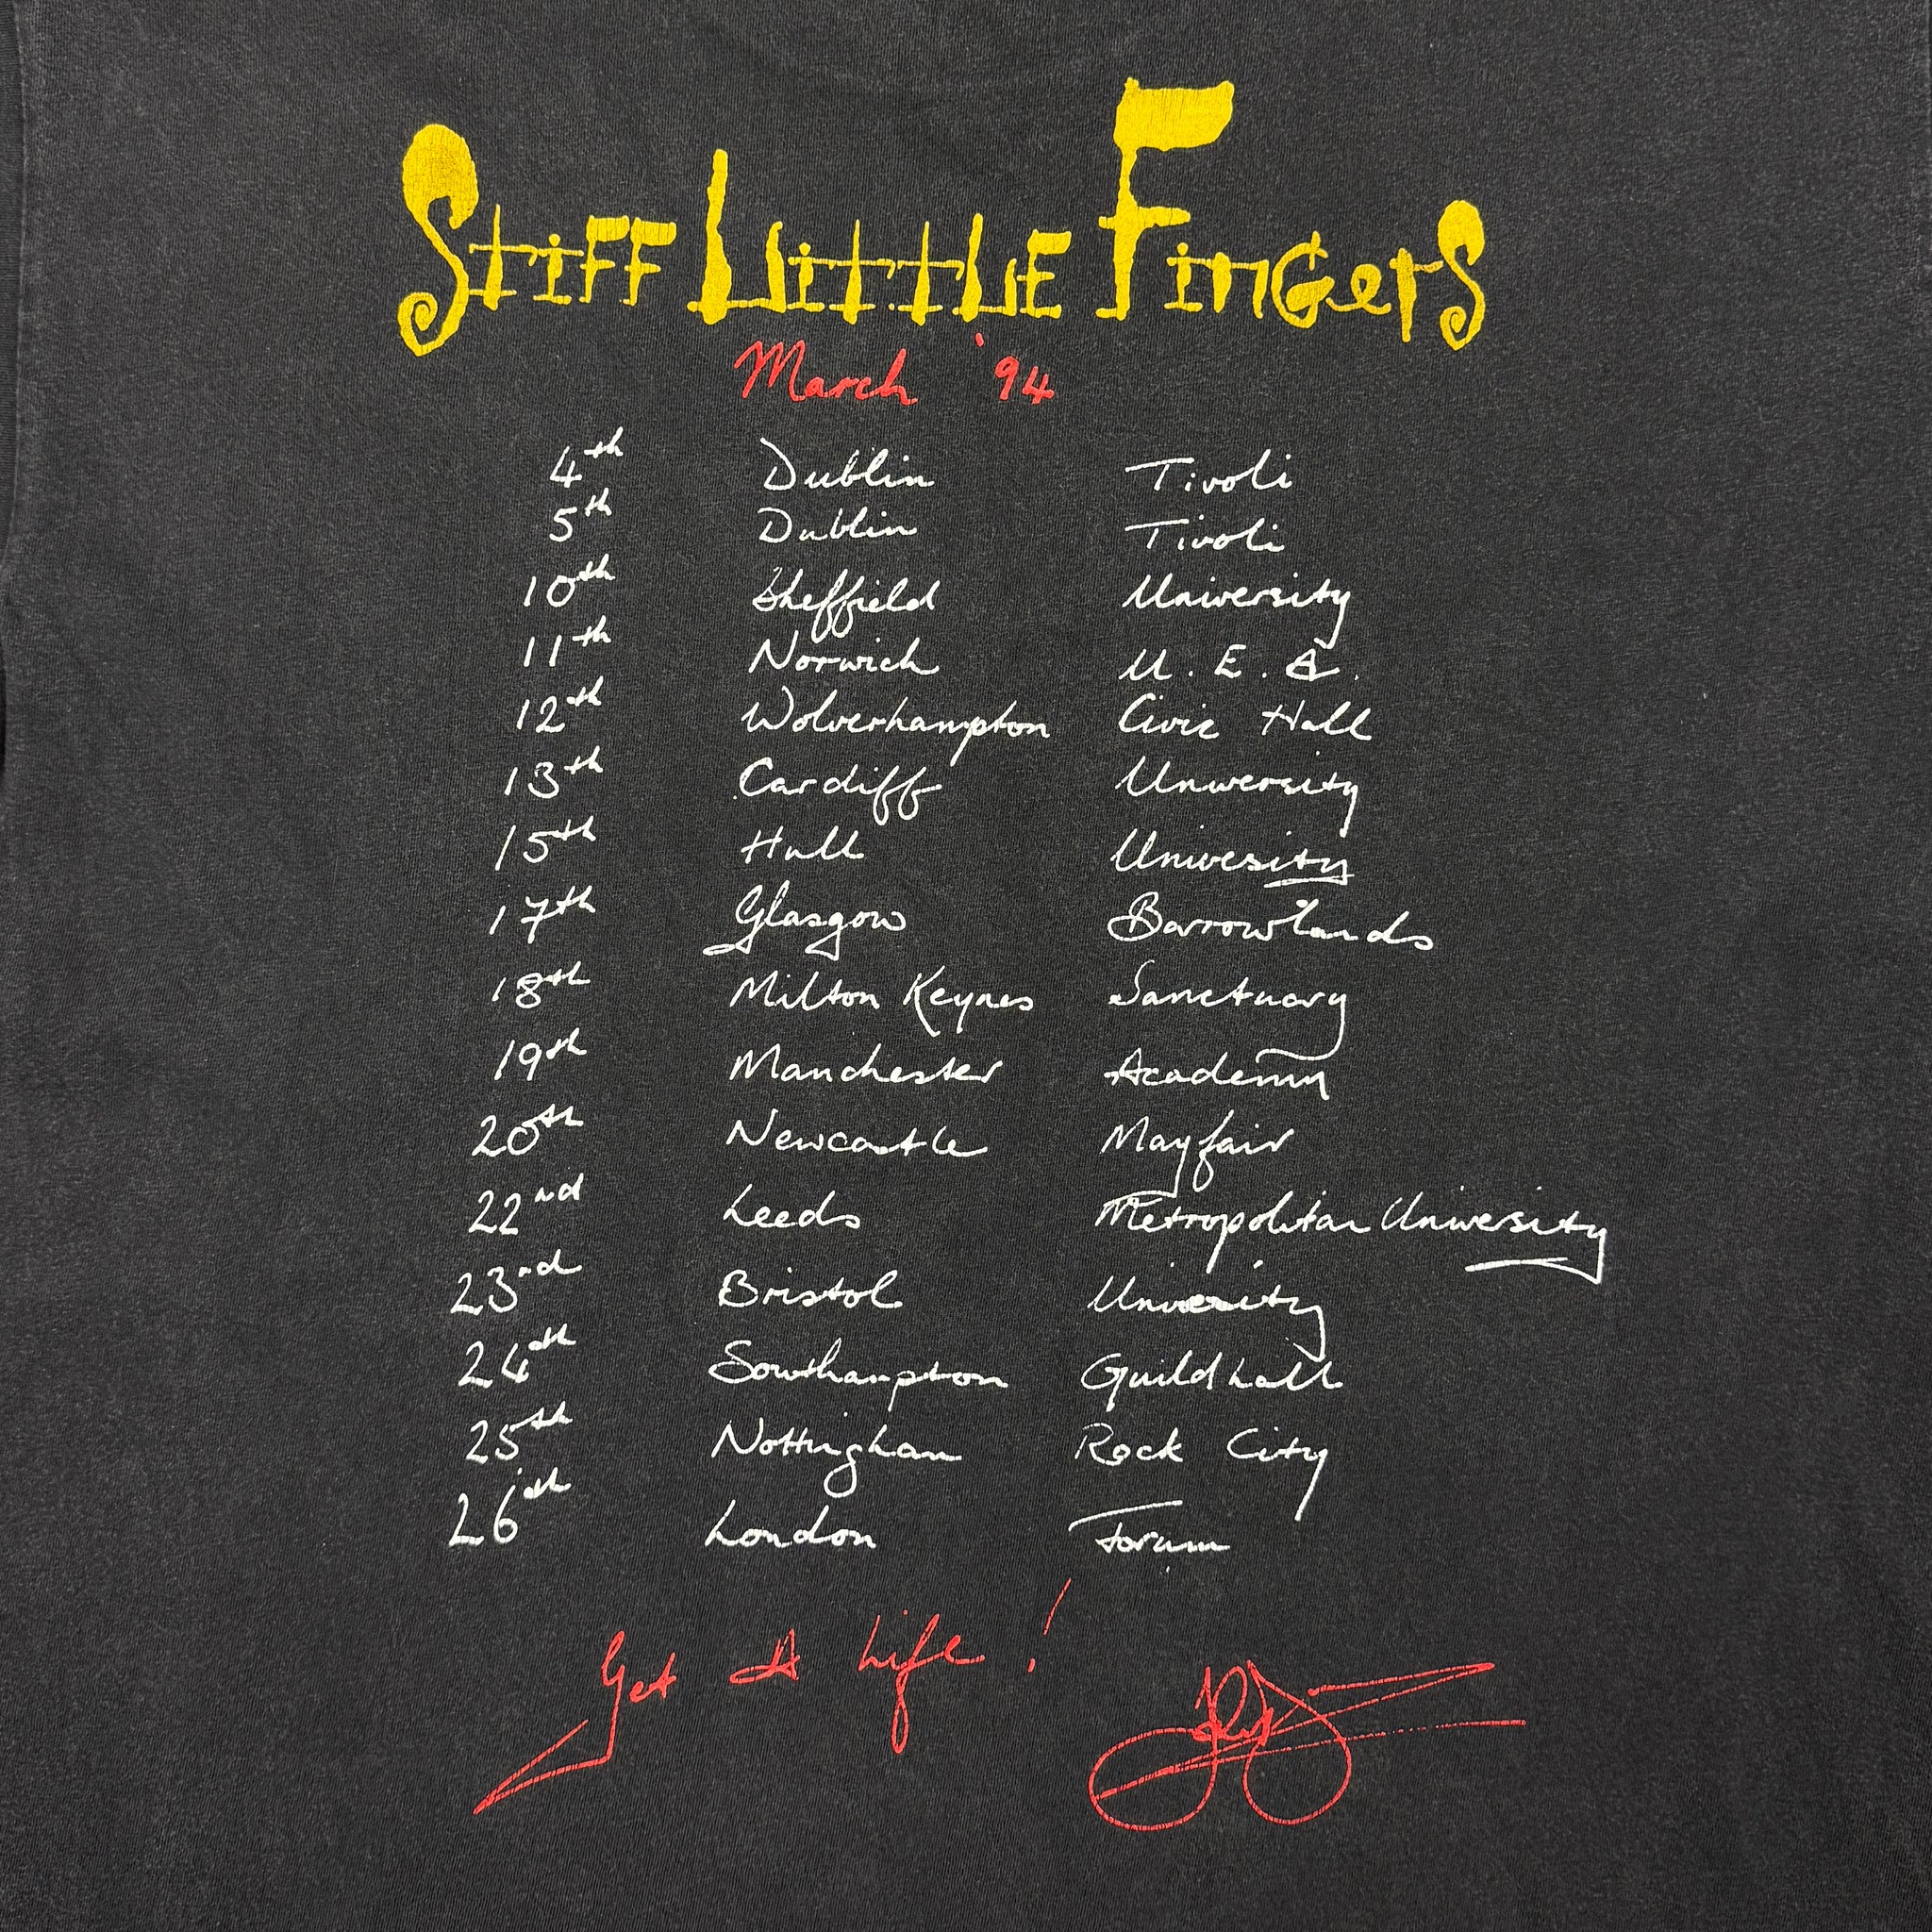 Stiff Little Fingers
March '94
4th Dublin Tivoli
5th Dublin Tivoli
10th Sheffield University
11th Norwich U.E.A.
12th Wolverhampton Civic Hall
13th Cardiff University
15th Hull Univesity
17th Glasgow Barrowlands
18th Milton Keynes Sanctuary
19th Manchester Academy
20th Newcastle Mayfair
22nd Leeds Metropolitan University
23rd Bristol University
24th Southampton Guildhall
25th Nottingham Rock City
26th London Forum
Get A Life!